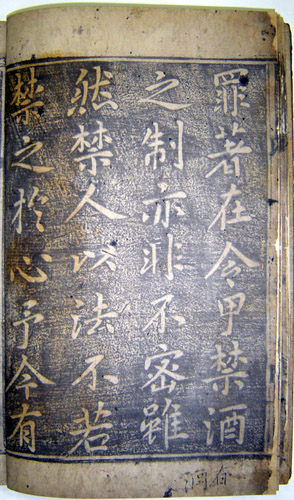 罪著在令甲禁酒
之制亦非不密雖
然禁人以法不若
禁之於心予今有